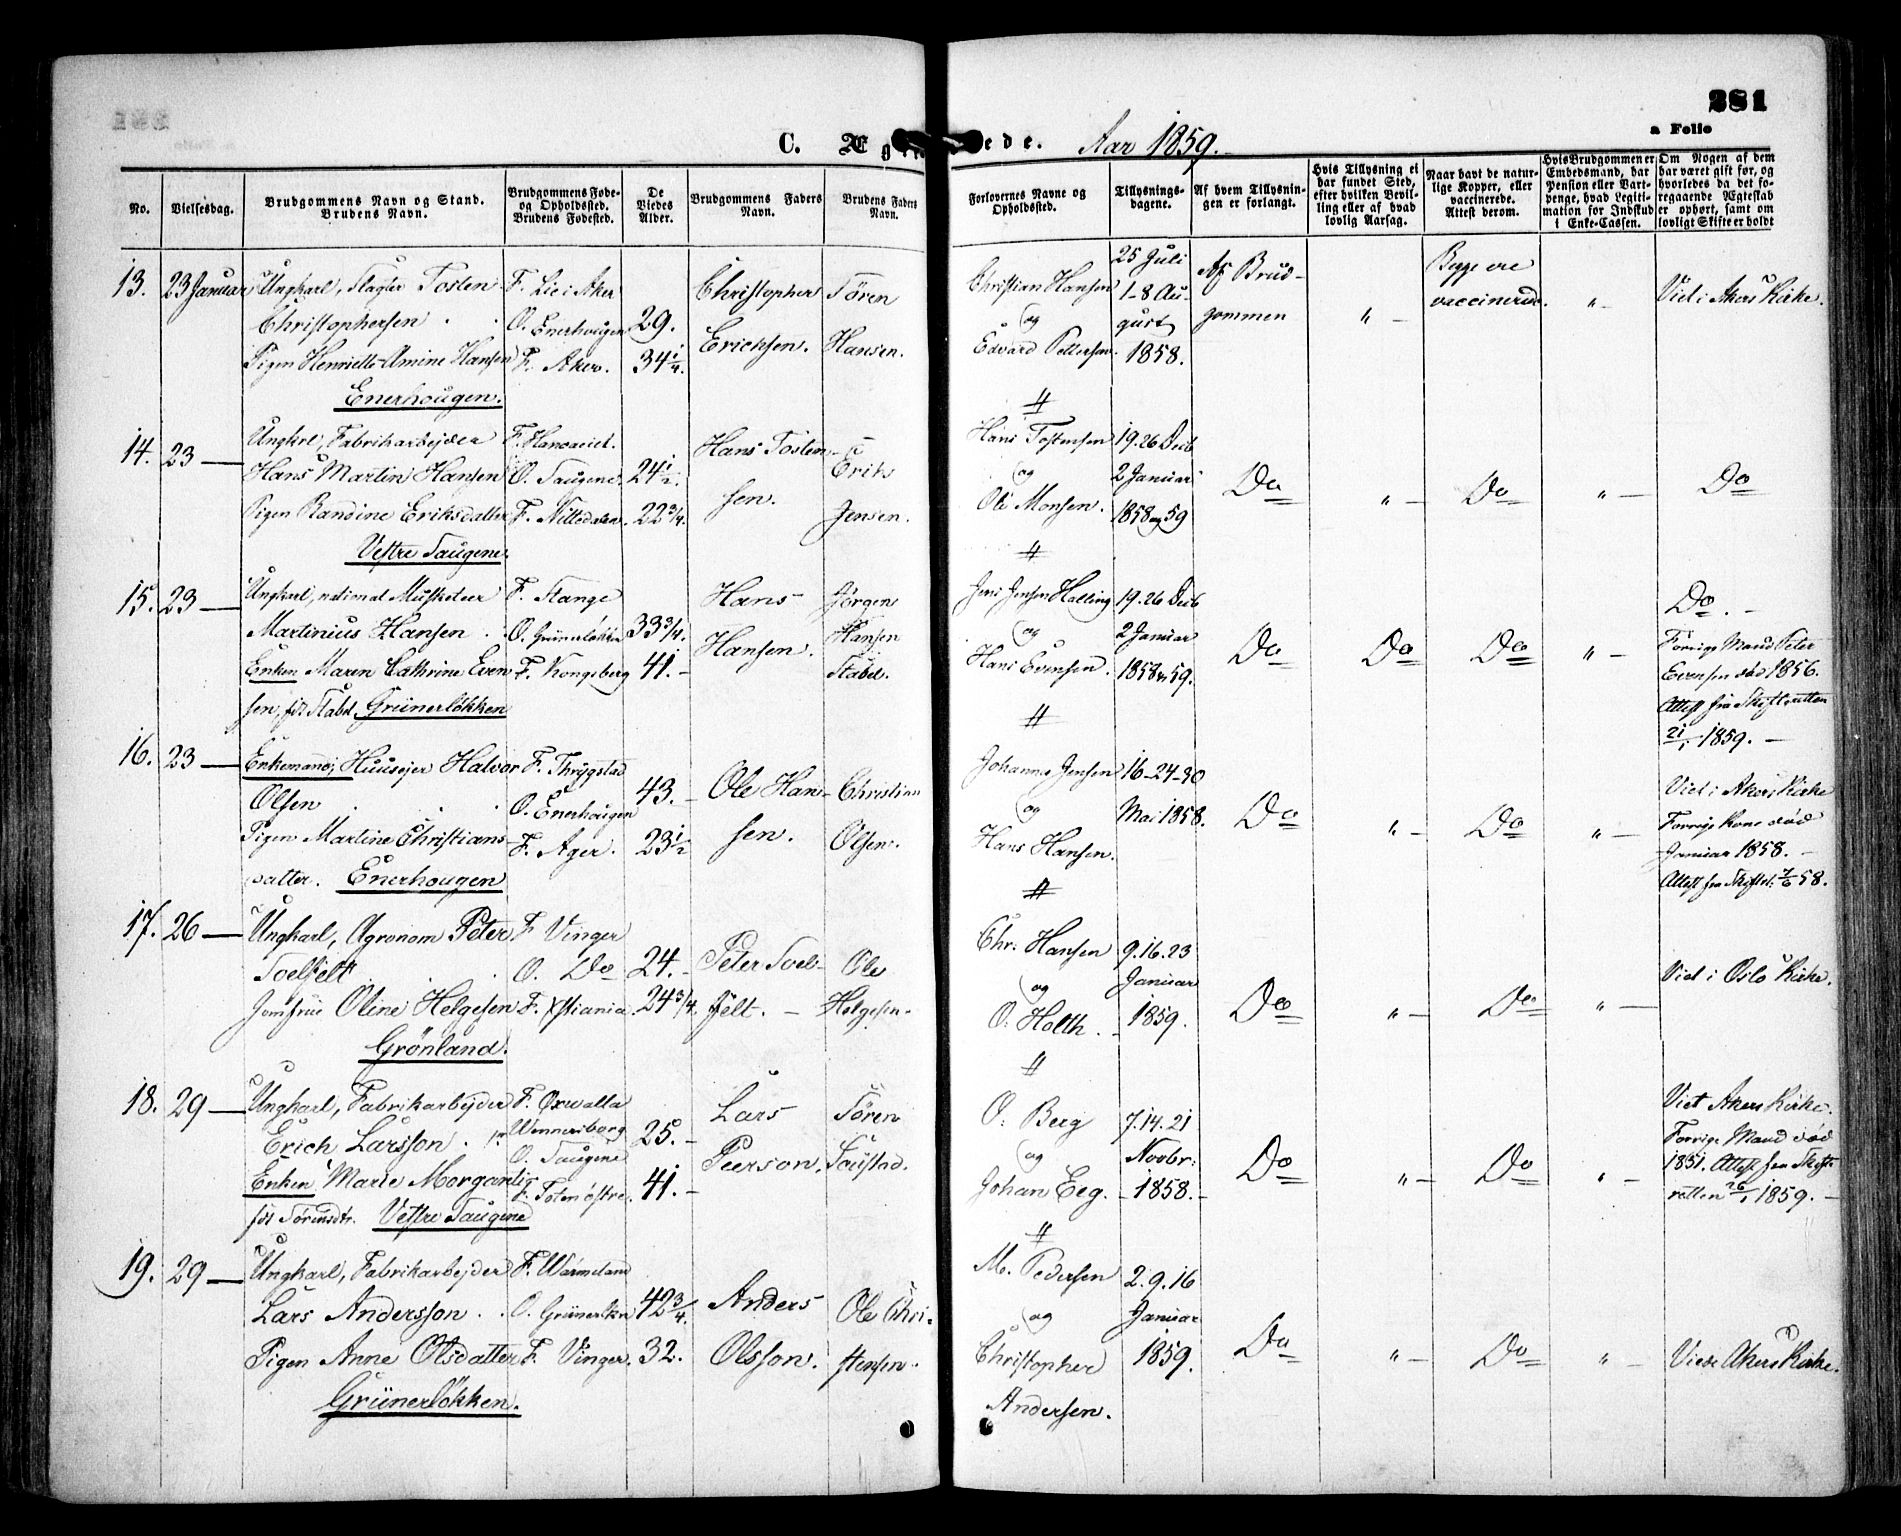 281
a Folio
C. Ægt
ede. Aar 1859.
No.
Vielsesdag.
Brudgommens Navn og Stand.
Brudens Navn.
Brudgommens Føde-
og Opholdssted.
Brudens Fødested.
De
Viedes
Alder.
Brudgommens Faders
Navn.
Brudens Faders
Navn.
Forlovernes Navne og
Opholdssted.
Tillysnings-
dagene.
Af hvem Tillysnin-
gen er forlangt.
Hvis Tillysning ei
har fundet Sted,
efter hvilken Bevil-
ling eller af hvad
lovlig Aarsag.
Naar havt de natur-
lige Kopper, eller
vaccinerede.
Attest derom.
Hvis Brudgommen er
Embedsmand, har
Pension eller Vart-
penge, hvad Legiti-
mation for Indskud
i Enke-Cassen.
Om Nogen af dem
har været gift før, og
hvorledes da det fo-
regaaende Ægteskab
er ophørt, samt om
lovligt Skifte er holdt
13. 23 Januar Ungkarl, Slagter Tosten
Christophersen
Pigen Henriette Amine Hansen
Enerhougen.
F. Lie i Aker
O. Enerhougen
F. Aker.
29.
34 1/4.
Christopher
Ericksen.
Sören
Hansen.
Christian Hansen
og
Edvard Pettersen.
25 Juli
1-8 Au-
gust
1858.
Af Brud-
gommen
" —
Begge ere
vaccinerede.
" -
Viet i Akers Kirke.
14. 23 — Ungkrl, Fabrikarbejder
Hans Martin Hansen
Pigen Randine Eriksdatter
Vestre Saugene.
O. Saugene.
F. Nittedalen.
24 1/2.
22 3/4.
Hans Tosten-
sen.
Erik
Jensen.
#
Hans Tostensen
og
Ole Monsen.
19. 26 Decb
2 Januar
1858 og 59
Do
" —
Do
" —
Do
15. 23 — Ungkarl, national Musketeer
Martinius Hansen
Enken Maren Cathrine Even
sen, föt Stabel Grünerlökken
F. Stange
O. Grünerløkken
F. Kongsberg
33 3/4.
41. -
Hans
Hansen.
Jørgen
Hansen
Stabel.
#
Jens Jensen Halling
og
Hans Evensen.
19. 26 Decb
2 Januar
1858 & 59.
Do
Do
Do
" —
Do. -
Forrige Mand Peter
Evensen død 1856.
Attest fra Skifteretten
21/1 1859. —
16. 23 — Enkemand, Huusejer Halvor
Olsen
Pigen Martine Christians-
datter. Enerhougen
F. Thrygstad
O. Enerhougen
F. Ager.
43. -
23 1/2
Ole Han-
sen.
Christian
Olsen.
#
Johannes Jensen
og
Hans Hansen.
16-24-30
Mai 1858.
Do
" —
Do
" —
Viet i Akers Kirke
Forrige Kone død
Januar 1858. -
Attest fra Skiftet: 7/6 58.
17. 26 — Ungkarl, Agronom Peter
Soelfelt
Jomfrue Oline Helgesen
Grönland.
F. Vinger
O. Do
F. Xstiania.
24. -
24 3/4.
Peter Soel-
felt. —
Ole
Helgesen.
#
Chr: Hansen
og
O: Holth.
9. 16. 23
Januar
1859.
Do
" —
Do
" —
Viet i Oslo Kirke.
18. 29 — Ungkarl, Fabrikarbejder
Erich Larsson.
Enken Marie Morganlie
föt Sörensdtr. Vestre Saugene
F. Oxwalla
Wennersborg
O. Saugene
F. Toten østre.
25. -
41. -
Lars
Peerson.
Sören
#
O: Berg
og
Johan Eeg.
7. 14. 21
Novbr:
1858. -
Do
" —
Do
" -
Viet Akers Kirke.
Forrige Mand død
1851. Attest fra Skifte
retten 26/1 1859. -
19. 29 — Ungkarl, Fabrikarbejder
Lars Andersson
Pigen Anne Olsdatter
Grünerlökken.
F. Wärmeland
O. Grünerlkn
F. Vinger.
42 3/4.
32.
Anders
Olsson.
Ole Chri-
stensen.
#
M. Pedersen
og
Christopher
Andersen.
2. 9. 16
Januar
1859.
Do
" —
Do
" —
Viede Akers Kirke.